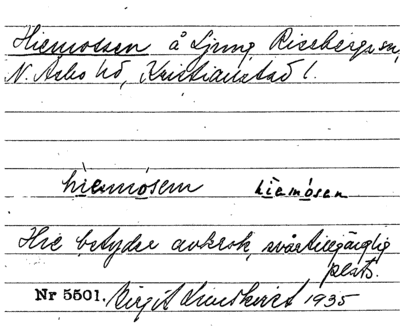 Hiemossen å Ljung, Riseberga sn,
N. Åsbo hd, Kristianstad l.
hi̱emo̱sem hi̱emo̱sen
Hie betyder avkrok, svårtillgänglig
plats.
Nr 5501. Birgit 1935